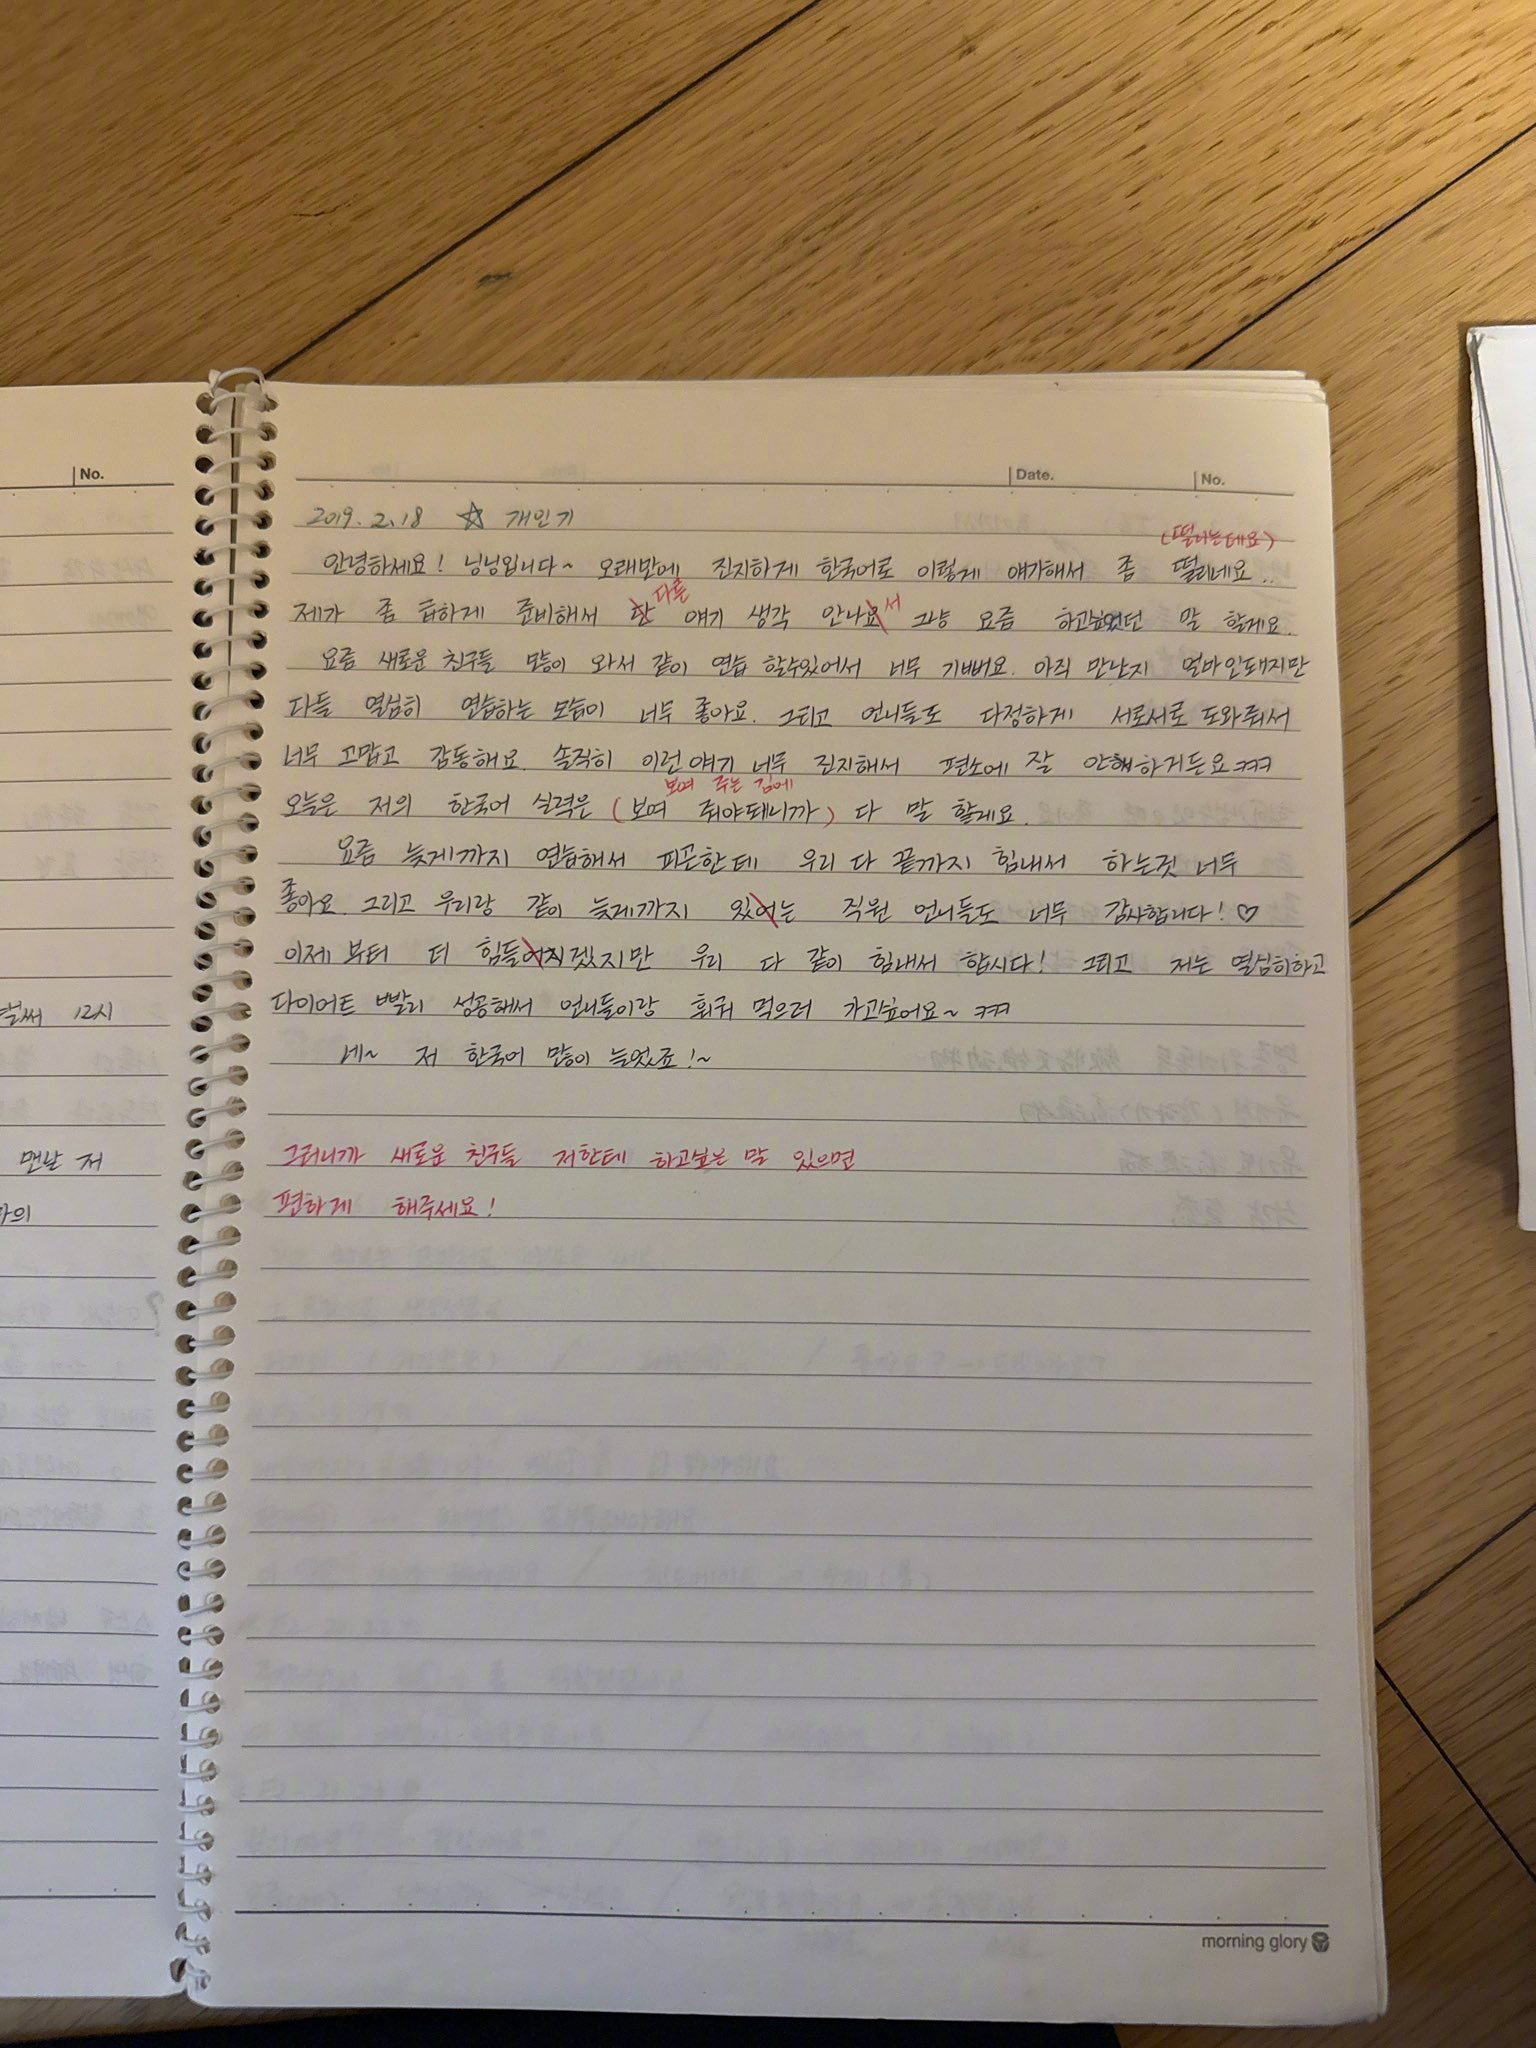 No.
Date.
No.
2019. 2. 18 ☆ 개인기
(떨리는데요)
안녕하세요! 닝닝입니다~ 오래만에 진지하게 한국어로 이렇게 얘기해서 좀 떨리네요..
다른
서
제가 좀 급하게 준비해서 딴 얘기 생각 안나요 그냥 요즘 하고싶었던 말 할게요.
요즘 새로운 친구들 많이 와서 같이 연습 할수있어서 너무 기뻐요. 아직 만난지 얼마안돼지만
다들 열심히 연습하는 모습이 너무 좋아요. 그리고 언니들도 다정하게 서로서로 도와줘서
너무 고맙고 감동해요. 솔직히 이런얘기 너무 진지해서 편소에 잘 안해하거든요ㅋㅋㅋ
보여 주는 김에
오늘은 저의 한국어 실력은 (보여 줘야돼니까) 다 말 할게요.
요즘 늦게까지 연습해서 피곤한데 우리 다 끝까지 힘내서 하는것 너무
좋아요. 그리고 우리랑 같이 늦게까지 있어는 직원 언니들도 너무 감사합니다! ♡
이제부터 더 힘들어지겠지만 우리 다 같이 힘내서 합시다! 그리고 저는 열심히하고
다이어트 빨리 성공해서 언니들이랑 훠궈 먹으러 가고싶어요~ ㅋㅋㅋ
네~ 저 한국어 많이 늘었죠!~
그러니까 새로운 친구들 저한테 하고싶은 말 있으면
편하게 해주세요!
벌써 12시
맨날 저
morning glory